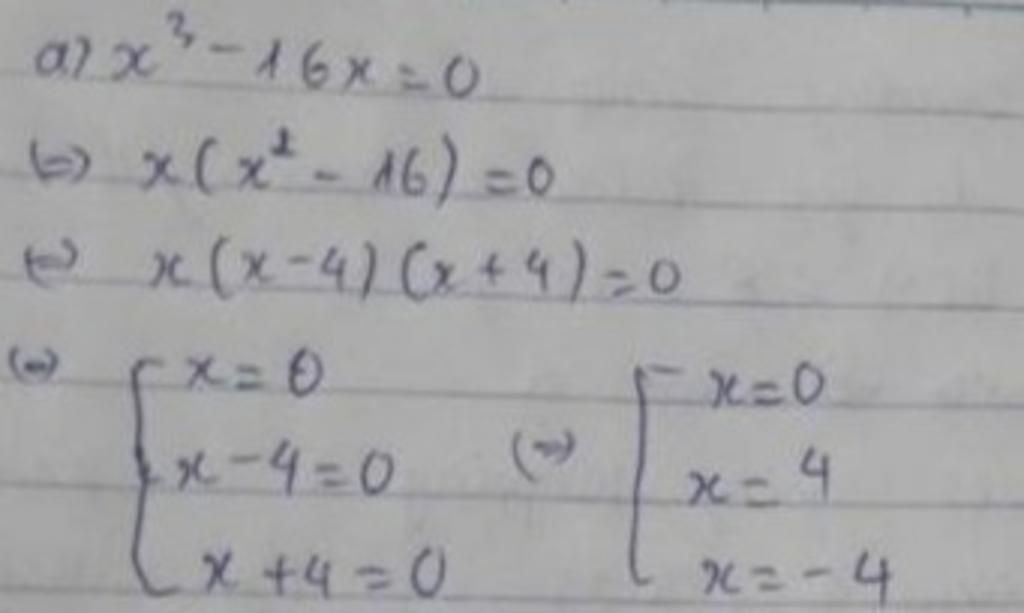 a) x³ - 16x = 0
⇔ x(x² - 16) = 0
⇔ x(x - 4)(x + 4) = 0
⇔ [ x = 0 [ x = 0
x - 4 = 0 ⇔ x = 4
x + 4 = 0 x = -4